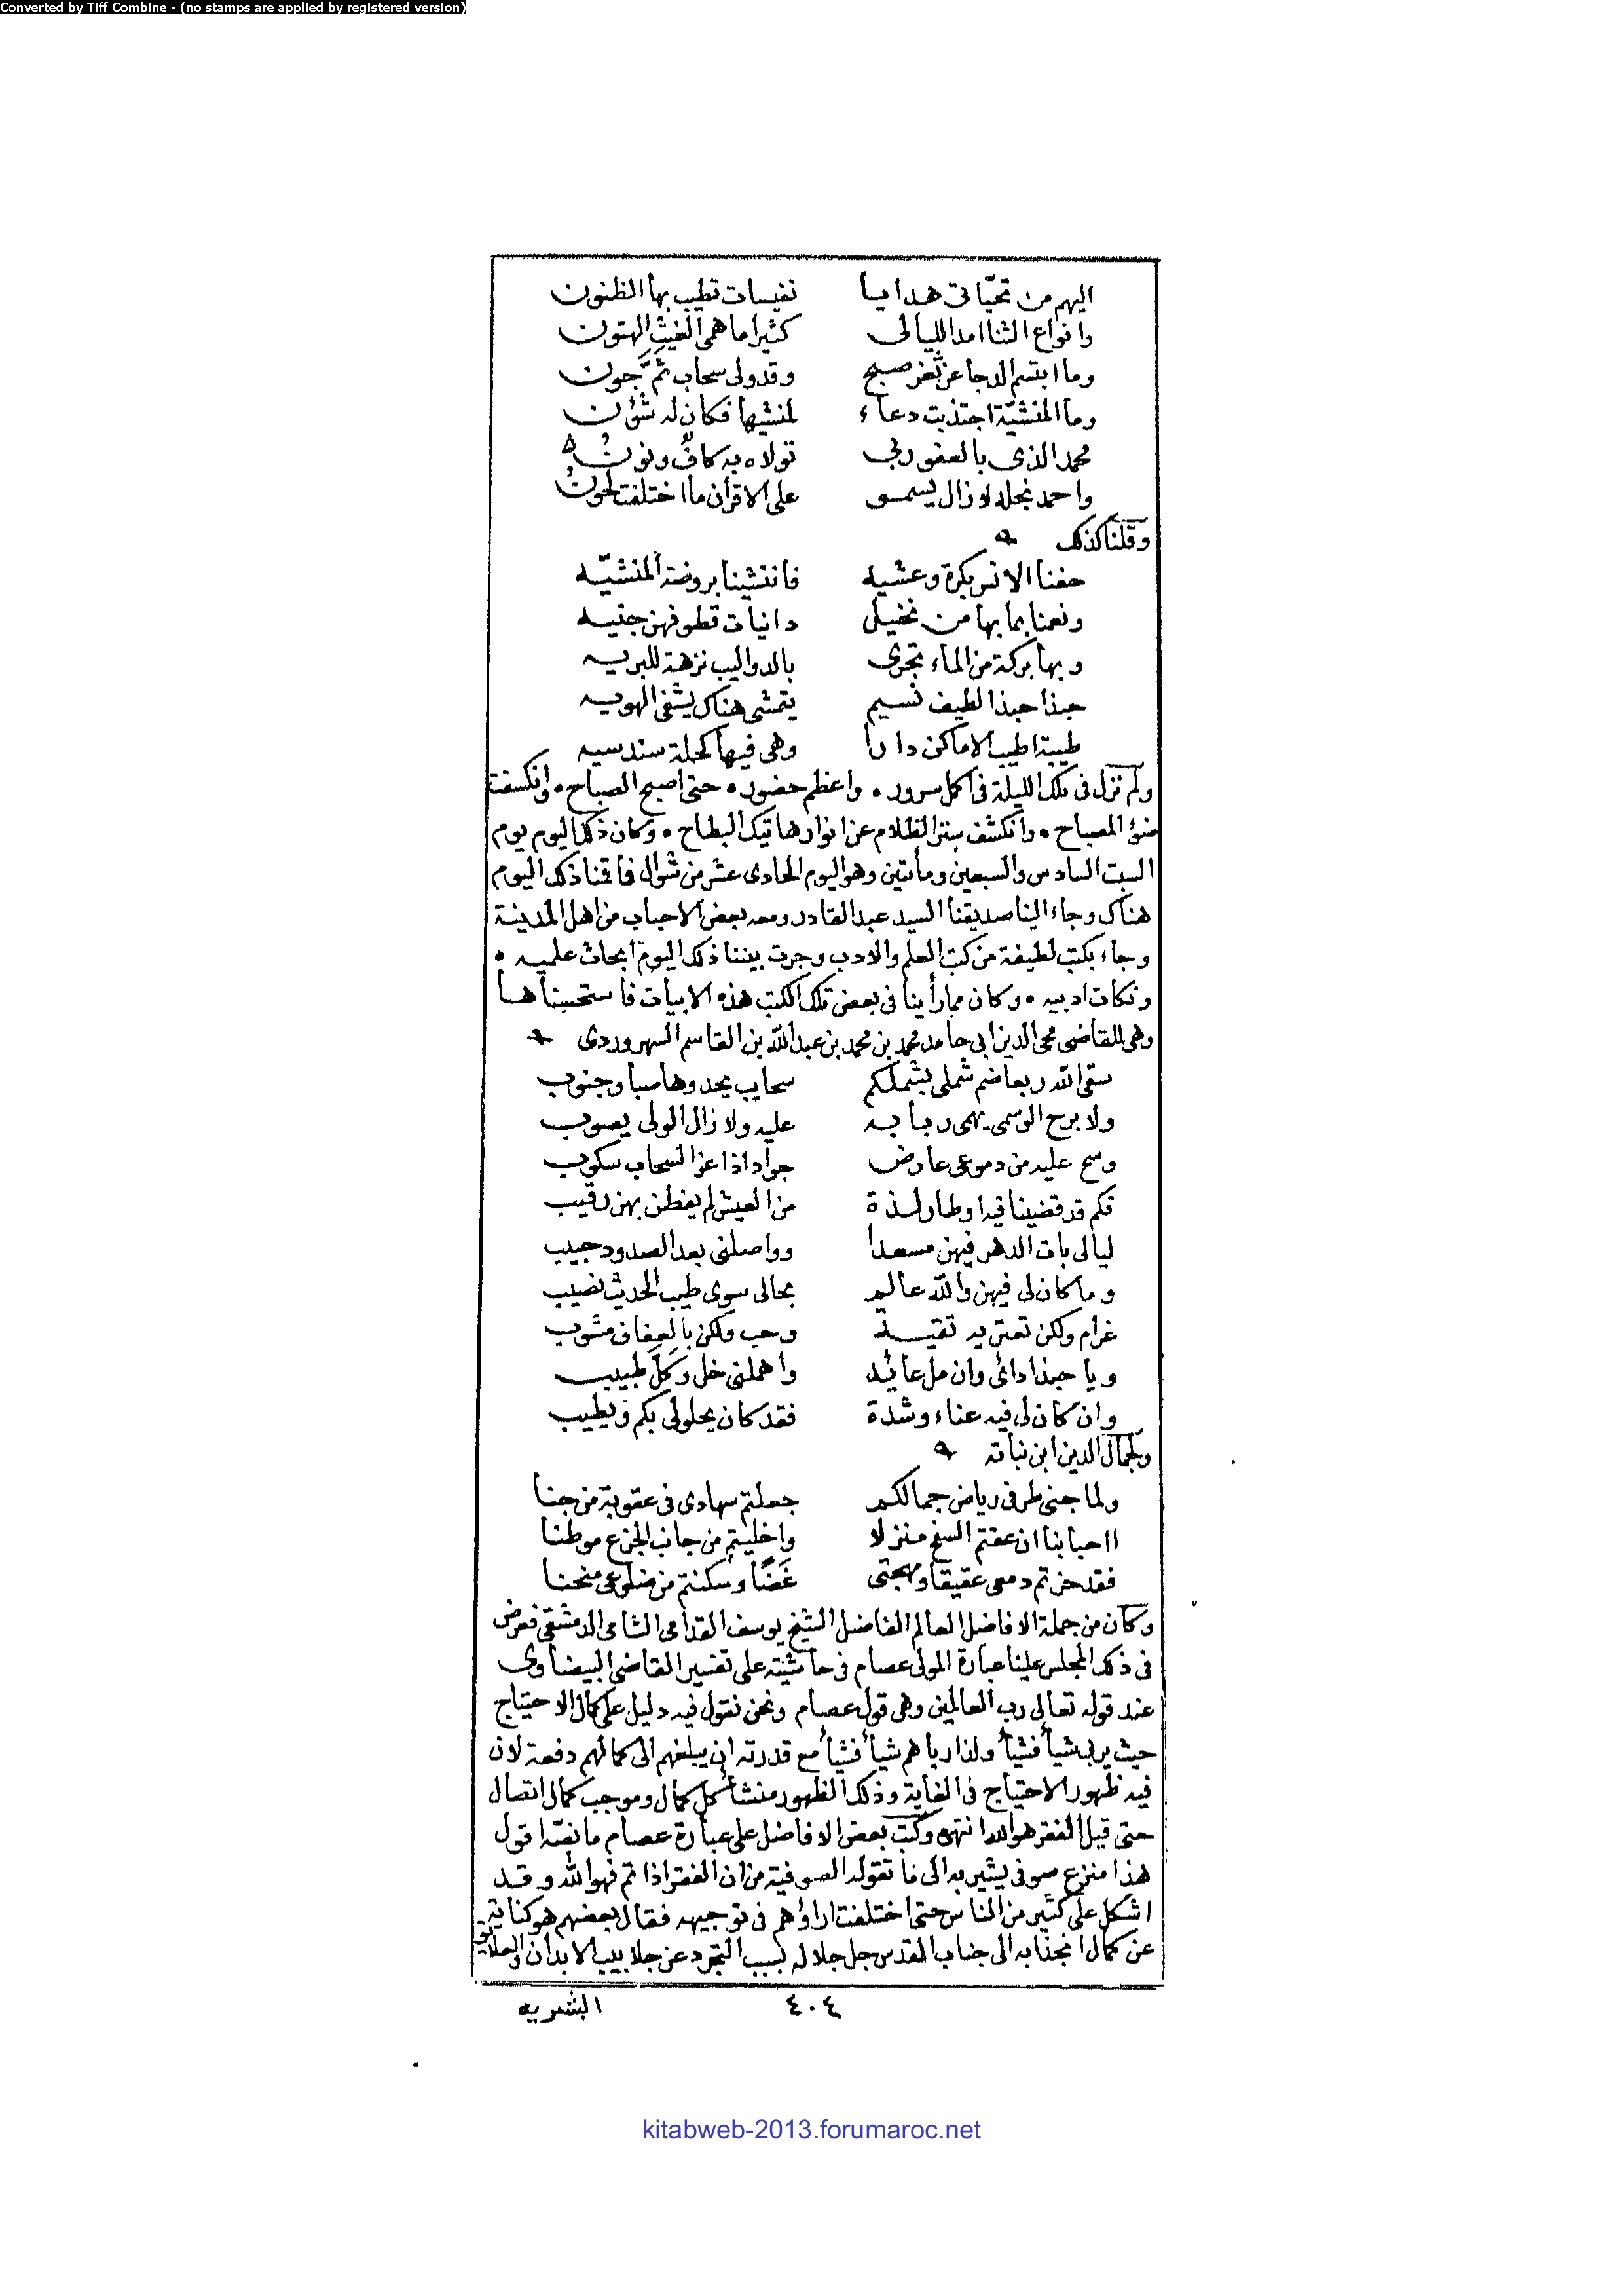 Converted by Tiff Combine - (no stamps are applied by registered version)
اليهم من تحيّاتى هدايا نفيسات تطيب بها الظنون
وانواع الثنا امد الليالى كثيرا ما همى الغيث الهتون
وما ابتسم الدجا عن ثغر صبح وقد ولى سحاب ثمَّ جون
وما المنشيّة اجتذبت دعاء لمنشيها فكان له شؤن
محمد الذى بالعفو ربى تولاه به كافٌ ونونُ
واحمد نجله لا زال يسمو على الاقران ما اختلفت لحونُ
وقلنا كذلك
حفنا الانس بكرة وعشيه فانتشينا بروضة المنشيّه
ونعمنا بما بها من نخيل دانيات قطوفهن جنيه
وبها بركة من الماء تجرى بالدواليب نزهة للبريه
حبذا حبذا لطيف نسيم يتمشى هناك يشفى الهويه
طيبة اطيب الاماكن دارا وهى فيها كحلة سندسيه
ولم نزل فى تلك الليلة فى اكمل سرور • واعظم حضور • حتى اصبح الصباح • وانكسفت
ضوؤ المصباح • وانكشف ستر الظلام عن انوار هاتيك البطاح • وكان ذلك اليوم يوم
السبت السادس والسبعين ومأتين وهو اليوم الحادى عشر من شوال فاقمنا ذلك اليوم
هناك وجاء الينا صديقنا السيد عبد القادر ومعه بعض الاحباب من اهل المدينة
وجاء بكتب لطيفة من كتب العلم والادب وجرت بيننا ذلك اليوم ابحاث علميه •
ونكات ادبيه • وكان مما رأينا فى بعض تلك الكتب هذه الابيات فاستحسناها
وهى للقاضى محيى الدين ابى حامد محمد بن محمد بن عبد الله بن القاسم السهروردى
سقى الله ربعا ضم شملى بشملكم سحايب يحدوها صبا وجنوب
ولا برح الوسمى يهمى ربابه عليه ولا زال الولى يصوب
وسح عليه من دموعى عارض جواد اذا عز السحاب سكوب
فكم قد قضينا فيه اوطار لذة من العيش لم يفطن بهن رقيب
ليالى بات الدهر فيهن مسعدا وواصلنى بعد الصدود حبيب
وما كان لى فيهن والله عالم بحالى سوى طيب الحديث نصيب
غرام ولكن تعتريه تقيـة وحب ولكن بالعفاف مشوب
ويا حبذا دائى وان مل عائد واهملنى خل وكلّ طبيب
وان كان لى فيه عناء وشدة فقد كان يحلو لى بكم ويطيب
ولجمال الدين ابن نباته
ولما جنى طرفى رياض جمالكم جعلتم سهادى فى عقوبة من جنا
ااحبابنا ان عفتم السفح منزلا واخليتم من جانب الجزع موطنا
فقد حزتم دمعى عقيقا ومهجتى غَضًا وسكنتم من ضلوعى منحنا
وكان من جملة الافاضل العالم الفاضل الشيخ يوسف القدامى الشامى الدمشقى فعرض
فى ذلك المجلس علينا عبارة المولى عصام فى حاشيته على تفسير القاضى البيضاوى
عند قوله تعالى رب العالمين وهى قول عصام ونحن نقول فيه دليل على كمال الاحتياج
حيث يربى شيأ فشيأ ولذا رباهم شيأ فشيأ مع قدرته ان يبلغهم الى كمالهم دفعة لان
فيه ظهور الاحتياج فى الغاية وذلك الظهور منشأ كل كمال وموجب كمال اتصال
حتى قيل الفقر هو الله انتهى وكتب بعض الافاضل على عبارة عصام ما نصّه اقول
هذا منزع صوفى يشير به الى ما تقوله الصوفية من ان الفقر اذا تم فهو الله وقد
اشكل على كثير من الناس حتى اختلفت اراؤهم فى توجيهه فقال بعضهم هو كناية
عن كمال انجذابه الى جناب القدس جل جلاله بسبب التجرد عن جلابيب الابدان والعلايق
البشريه
٤٠٤
kitabweb-2013.forumaroc.net